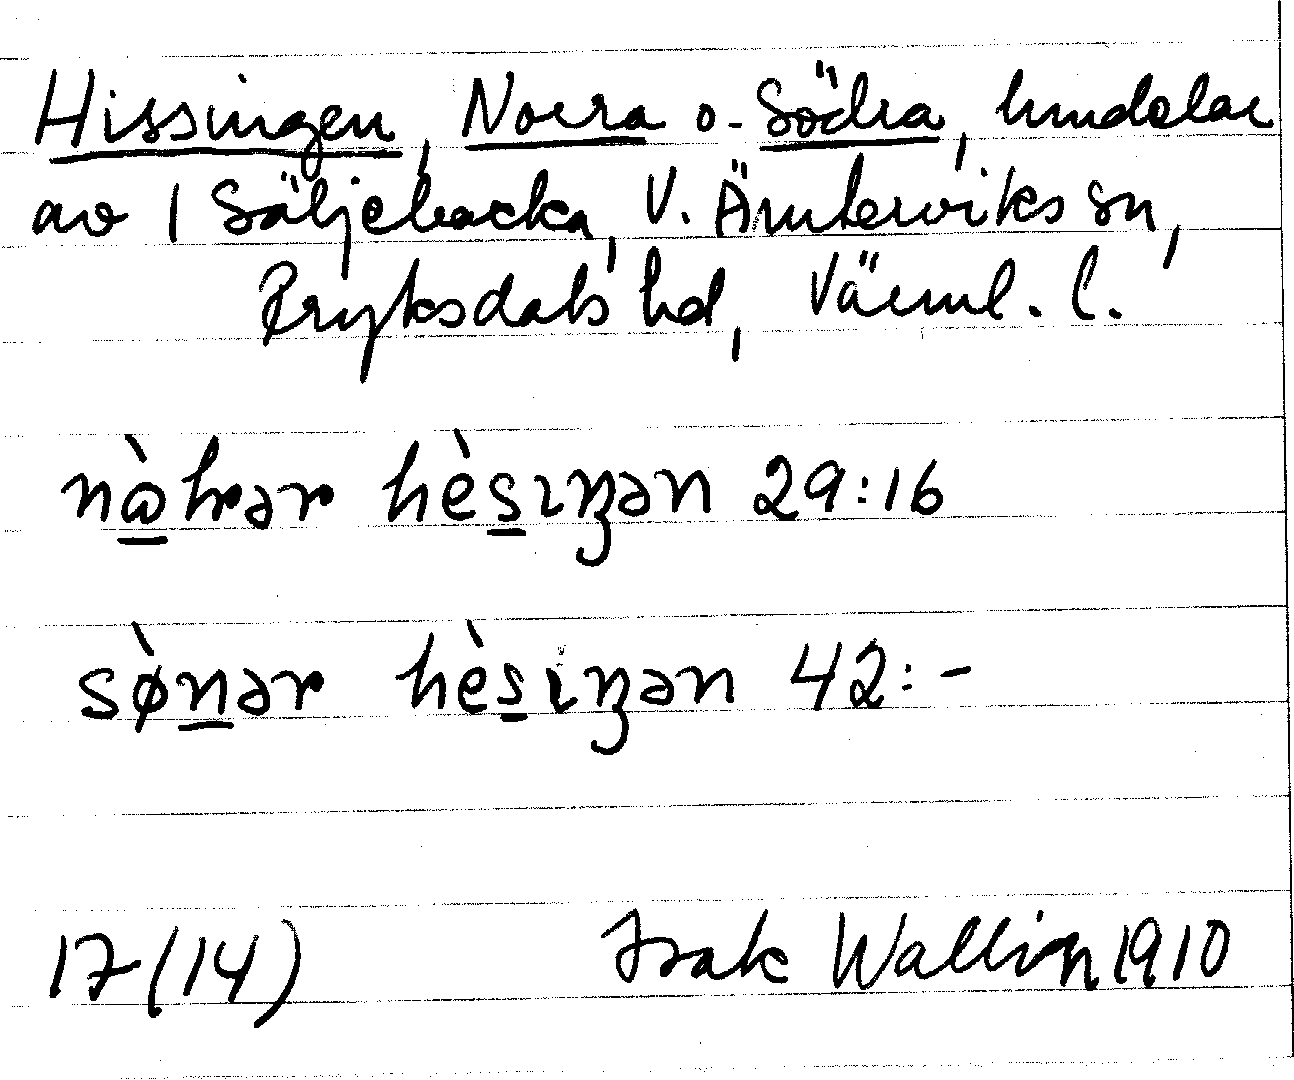 Hissingen, Norra o. Södra, hmdelar
av 1 Säljebacka, V. Ämterviks sn,
Fryksdals hd, Värml. l.
nὼhrər hèsıŋən 29:16
sø̀nər hèsıŋən 42:-
17(14) Isak Wallin 1910